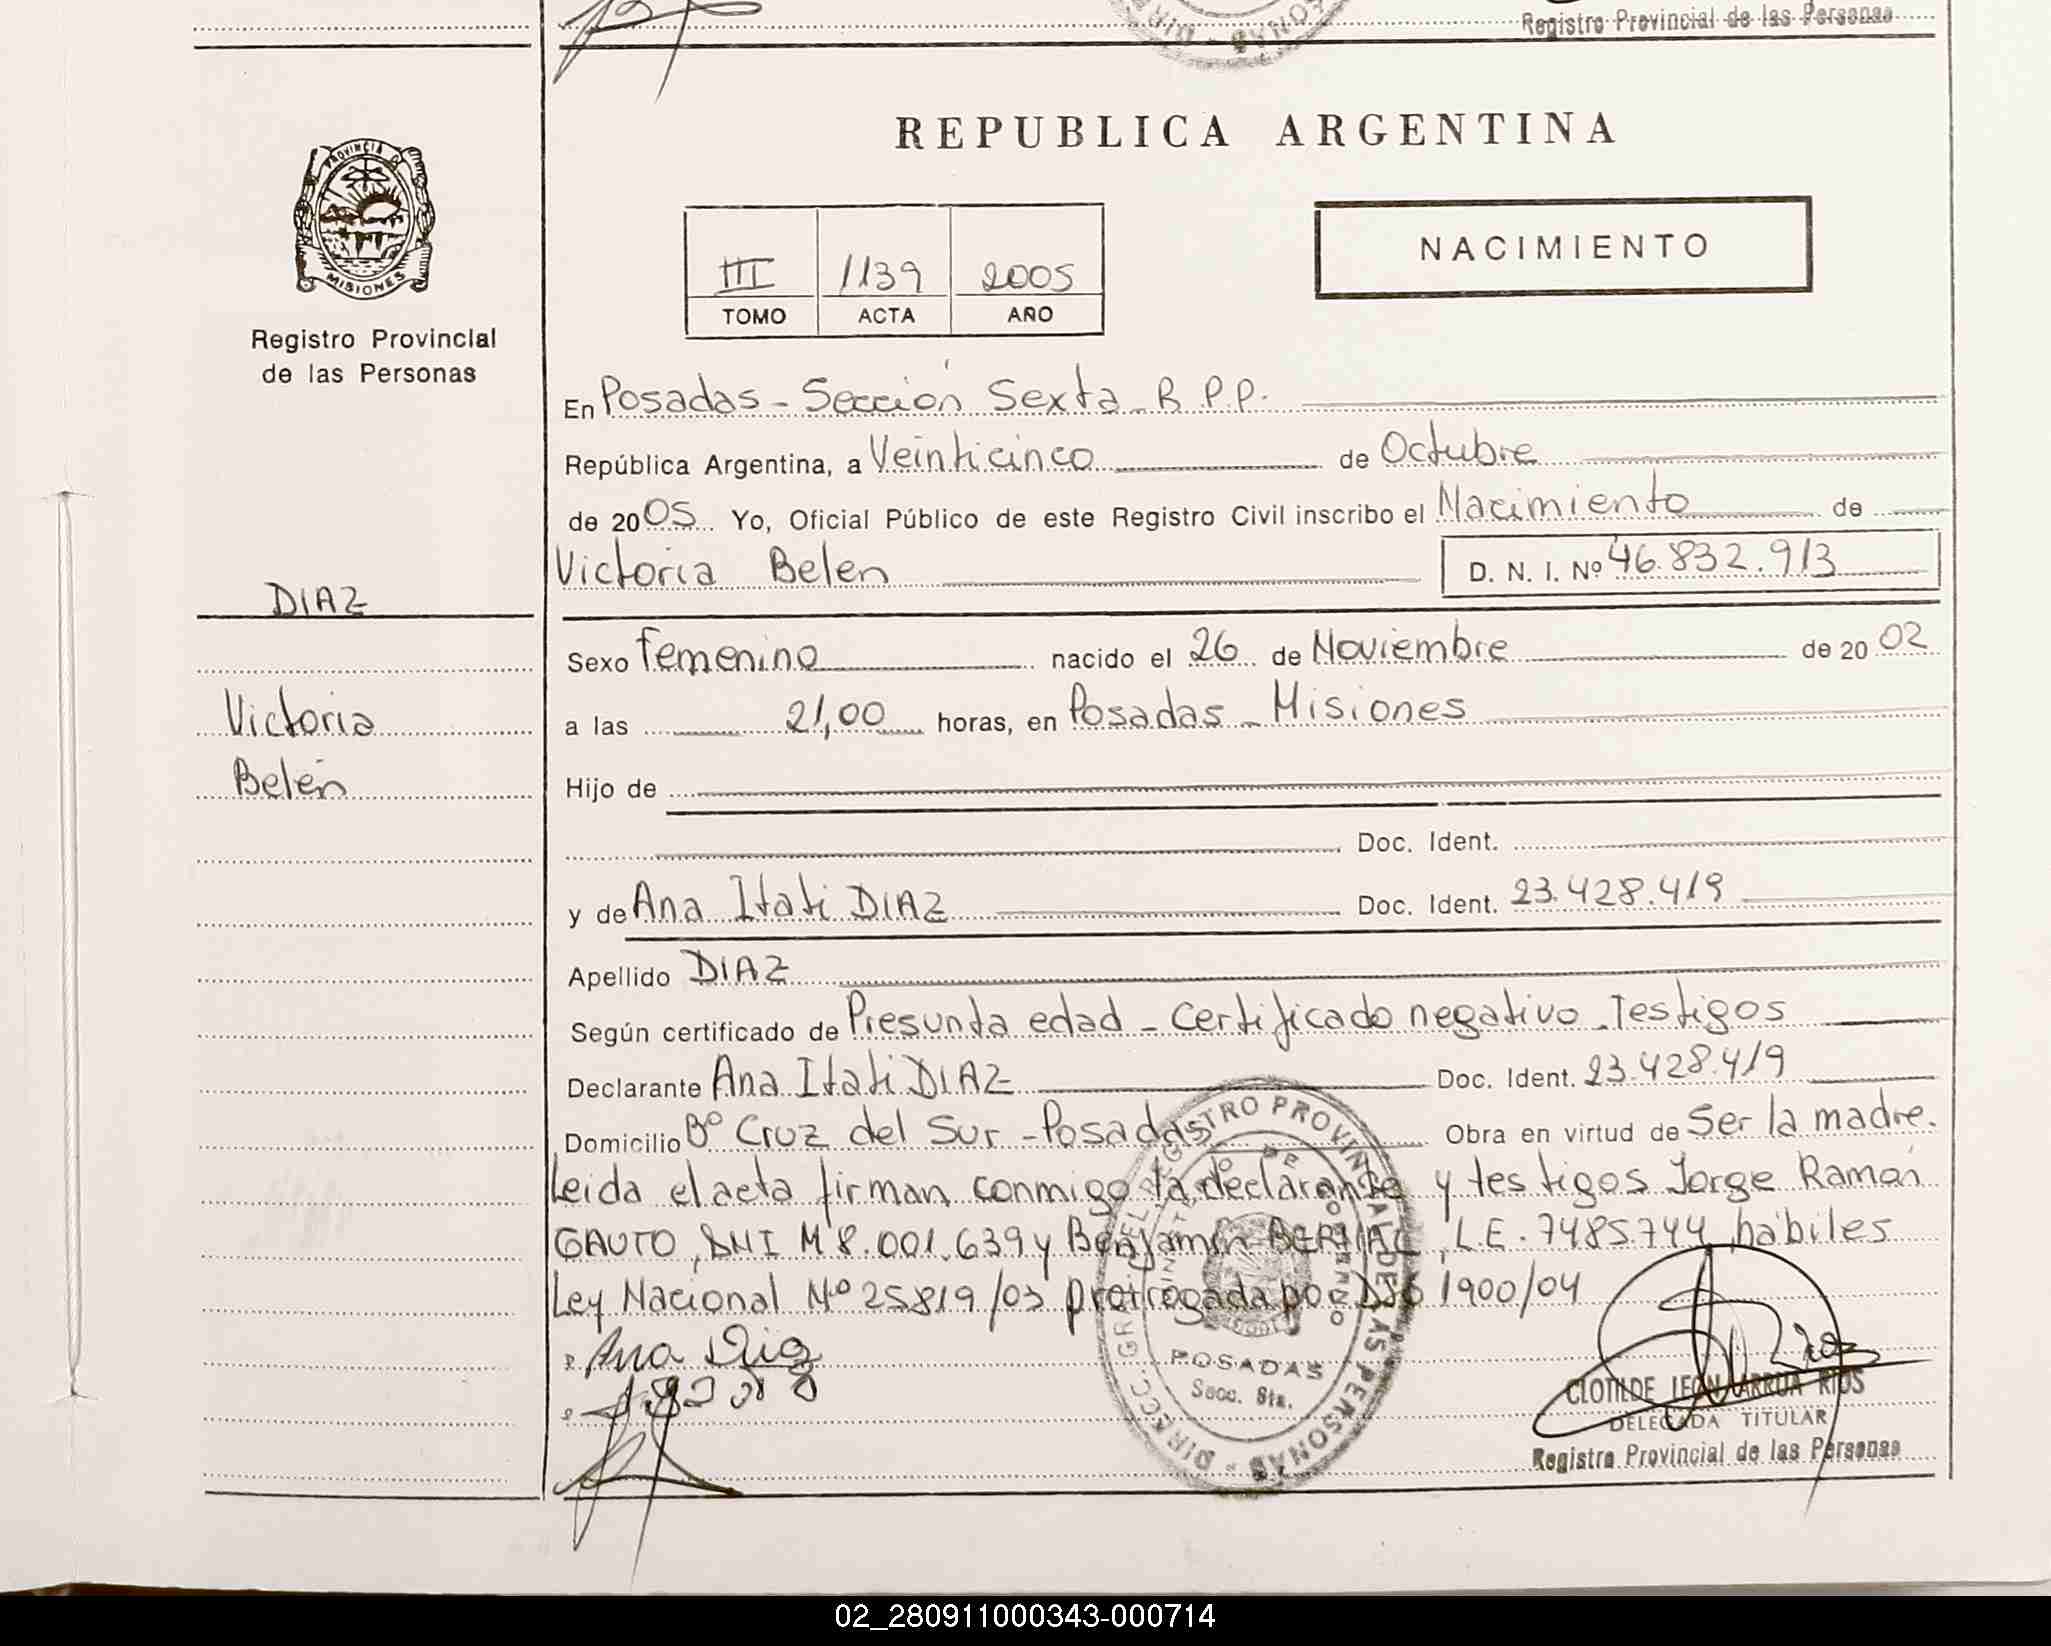 Registro Provincial de las Personas
REPUBLICA ARGENTINA
PROVINCIA D
MISIONES
Registro Provincial
de las Personas
III 1139 2005
TOMO ACTA AÑO
NACIMIENTO
En Posadas - Sección Sexta - R.P.P.
República Argentina, a Veinticinco de Octubre
de 2005 Yo, Oficial Público de este Registro Civil inscribo el Nacimiento de
Victoria Belen D. N. I. Nº 46.832.913
DIAZ
Sexo femenino nacido el 26 de Noviembre de 2002
Victoria
a las 21,00 horas, en Posadas - Misiones
Belén
Hijo de
Doc. Ident.
y de Ana Itati DIAZ Doc. Ident. 23.428.419
Apellido DIAZ
Según certificado de Presunta edad - certificado negativo - Testigos
Declarante Ana Itati DIAZ Doc. Ident. 23.428.419
Domicilio Bº Cruz del Sur - Posadas Obra en virtud de Ser la madre.
Leida el acta firman conmigo la declarante y testigos Jorge Ramón
GAUTO, DNI M 8.001.639 y Benjamín L.E. 7485744, hábiles
Ley Nacional Nº 25819/03 prorrogada por Dto 1900/04
Ana Diaz
DIRECC. GRAL DEL REGISTRO PROVINCIAL DE LAS PERSONAS
POSADAS
Secc. 6ta.
CLOTILDE LEON ARRUA RIOS
DELEGADA TITULAR
Registro Provincial de las Personas
02_280911000343-000714